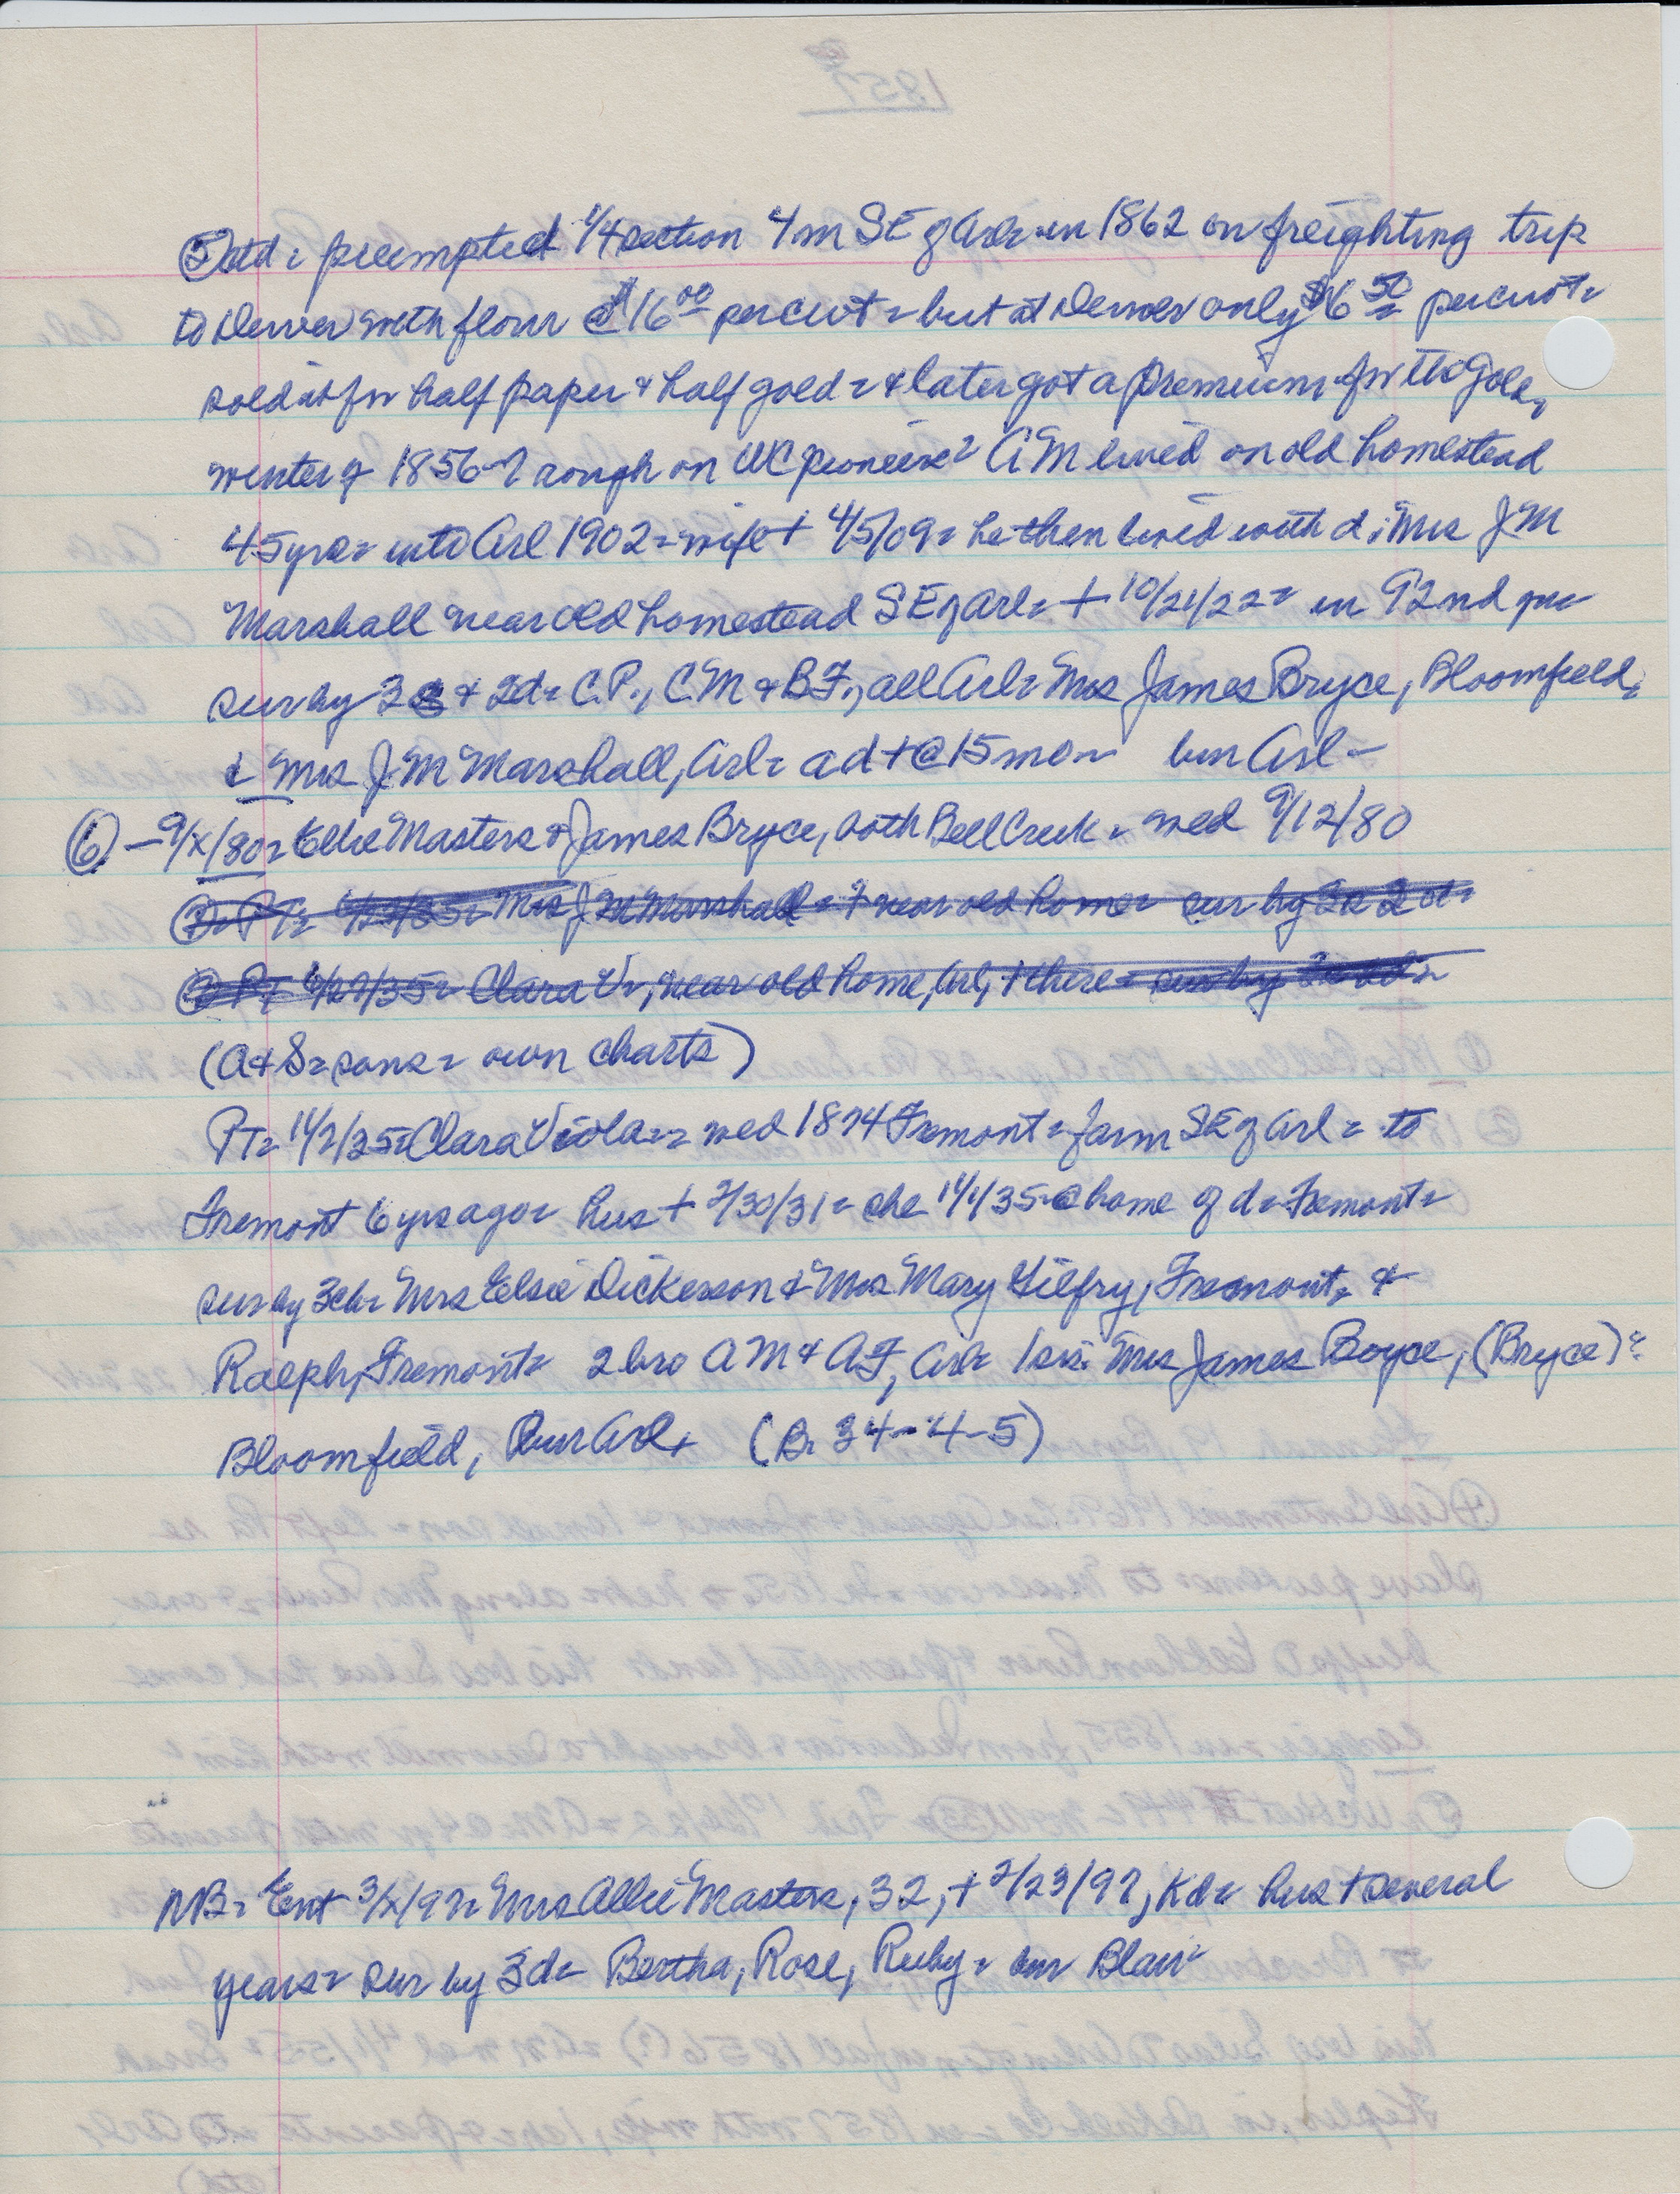 1857
⑤ctd = preempted 1/4 section 4 m SE of Arl = in 1862 on freighting trip
to Denver with flour @ $16.00 per cwt = but at Denver only $6.50 per cwt =
sold it for half paper & half gold = & later got a premium for the gold =
winter of 1856-7 rough on WC pioneers = AM lived on old homestead
45 yrs = into Arl 1902 = wife + 4/5/09 = he then lived with d: Mrs J M
Marshall near old homestead SE of Arl = + 10/21/22 = in 92nd yr =
sur by 3s & 2d = C.P., C.M & B.F., all Arl = Mrs James Bryce, Bloomfield,
& Mrs J.M Marshall, Arl = a d + @ 15 mo = bur Arl -
⑥ - 9/x/80 = Ellie Masters & James Bryce, both Bell Creek = wed 9/12/80
Mrs J M Marshall = + near old home = sur by 2d =
Clara V =, near old home, Arl, + there = sur by
(A & S = sons = own charts)
PT = 11/2/35 = Clara Viola = = wed 1874 Fremont = farm SE of Arl = to
Fremont 6 yrs ago = hus + 2/30/31 = she 11/1/35 @ home of d = Fremont =
sur by 3ch = Mrs Elsie Dickerson & Mrs Mary Gilfry, Fremont, &
Ralph, Fremont = 2 bro A M & A F, Arl = 1 sis: Mrs James Boyce, (Bryce)?
Bloomfield, bur Arl, (B. 34-4-5)
NB = Ent 3/x/97 = Mrs Allie Masters, 32, + 2/23/97, Kd = hus + several
years = sur by 3d = Bertha, Rose, Ruby = bur Blair =